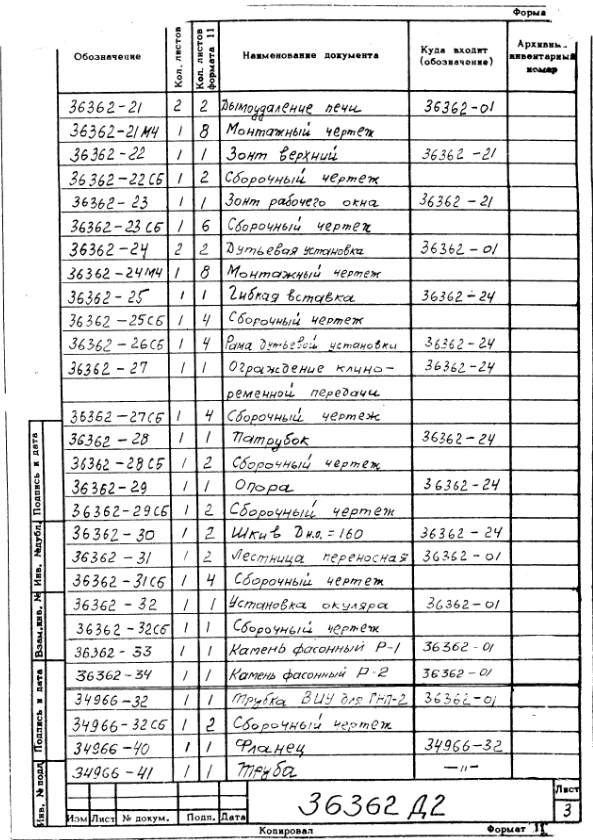 Форма
Обозначение Кол. листов Кол. листов формата 11 Наименование документа Куда входит (обозначение) Архивный инвентарный номер
36362-21 2 2 Дымоудаление печи 36362-01
36362-21МЧ 1 8 Монтажный чертеж
36362-22 1 1 Зонт верхний 36362-21
36362-22СБ 1 2 Сборочный чертеж
36362-23 1 1 Зонт рабочего окна 36362-21
36362-23СБ 1 6 Сборочный чертеж
36362-24 2 2 Дутьевая установка 36362-01
36362-24МЧ 1 8 Монтажный чертеж
36362-25 1 1 Гибкая вставка 36362-24
36362-25СБ 1 4 Сборочный чертеж
36362-26СБ 1 4 Рама дутьевой установки 36362-24
36362-27 1 1 Ограждение клино- 36362-24
ременной передачи
36362-27СБ 1 4 Сборочный чертеж
36362-28 1 1 Патрубок 36362-24
36362-28СБ 1 2 Сборочный чертеж
36362-29 1 1 Опора 36362-24
36362-29СБ 1 2 Сборочный чертеж
36362-30 1 2 Шкив Dн.о.=160 36362-24
36362-31 1 2 Лестница переносная 36362-01
36362-31СБ 1 4 Сборочный чертеж
36362-32 1 1 Установка окуляра 36362-01
36362-32СБ 1 1 Сборочный чертеж
36362-33 1 1 Камень фасонный Р-1 36362-01
36362-34 1 1 Камень фасонный Р-2 36362-01
34966-32 1 1 Трубка ВИУ для ГНП-2 36362-01
34966-32СБ 1 2 Сборочный чертеж
34966-40 1 1 Фланец 34966-32
34966-41 1 1 Труба —"—
Инв. № подл. Подпись и дата Взам. инв. № Инв. № дубл. Подпись и дата
Изм Лист № докум. Подп. Дата
36362 Д2
Лист
3
Копировал Формат 11